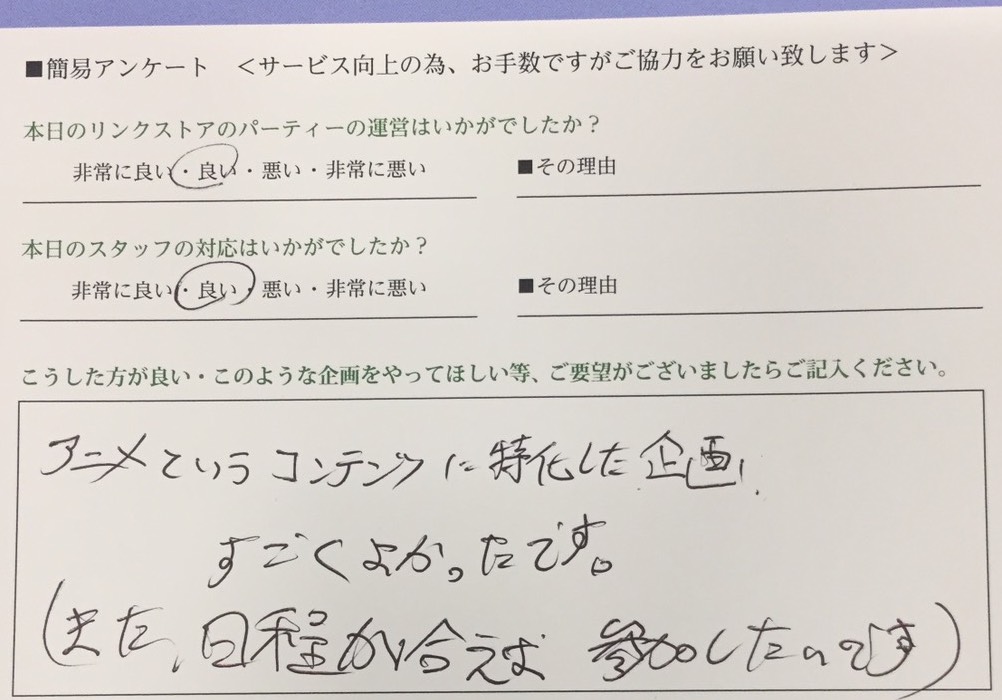 ■簡易アンケート ＜サービス向上の為、お手数ですがご協力をお願い致します＞
本日のリンクストアのパーティーの運営はいかがでしたか？
非常に良い・良い・悪い・非常に悪い ■その理由
本日のスタッフの対応はいかがでしたか？
非常に良い・良い・悪い・非常に悪い ■その理由
こうした方が良い・このような企画をやってほしい等、ご要望がございましたらご記入ください。
アニメというコンテンツに特化した企画、
すごくよかったです。
(また、日程が合えば 参加したいです)